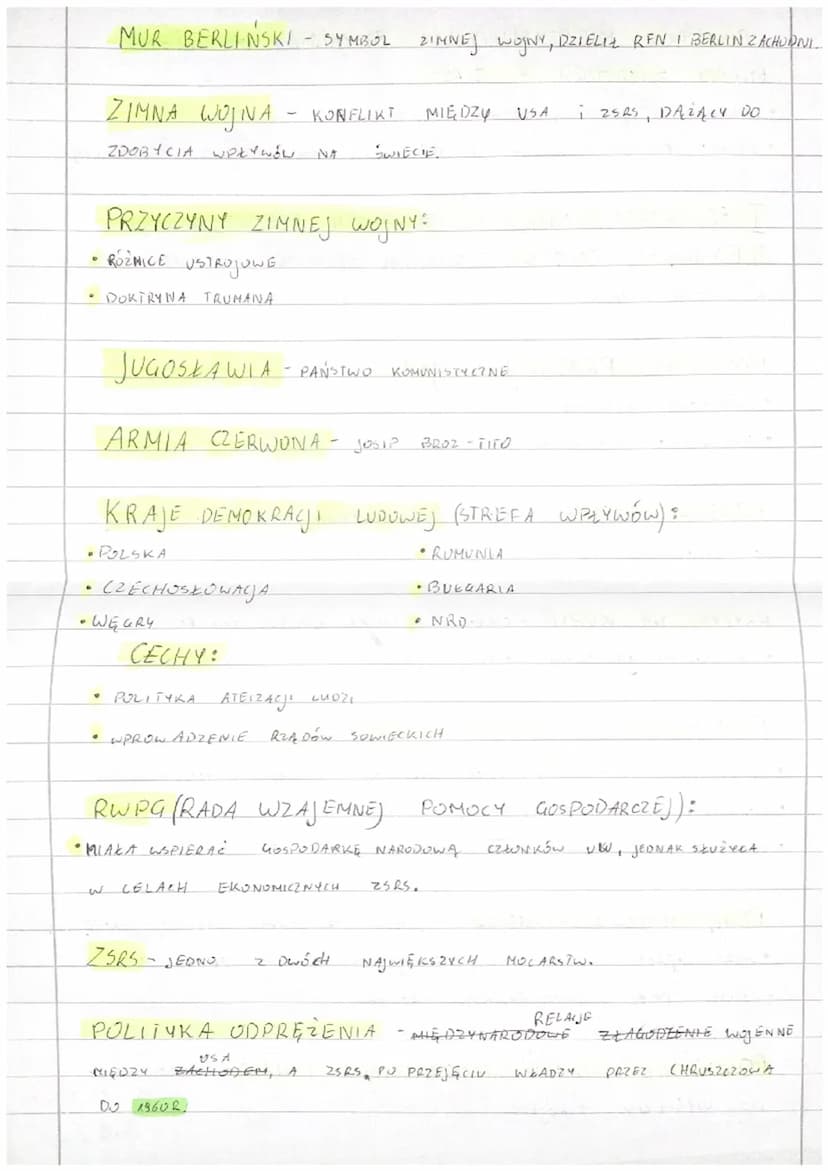 MUR BERLIŃSKI - SYMBOL ZIMNEJ WOJNY, DZIELIŁ RFN I BERLIN ZACHODNI.
ZIMNA WOJNA - KONFLIKT MIĘDZY USA i ZSRS, DĄŻĄCY DO
ZDOBYCIA WPŁYWÓW NA ŚWIECIE.
PRZYCZYNY ZIMNEJ WOJNY:
• RÓŻNICE USTROJOWE
• DOKTRYNA TRUMANA
JUGOSŁAWIA - PAŃSTWO KOMUNISTYCZNE
ARMIA CZERWONA - JOSIP BROZ - TITO
KRAJE DEMOKRACJI LUDOWEJ (STREFA WPŁYWÓW):
• POLSKA • RUMUNIA
• CZECHOSŁOWACJA • BUŁGARIA
• WĘGRY • NRD
CECHY:
• POLITYKA ATEIZACJI LUDZI
• WPROWADZENIE RZĄDÓW SOWIECKICH
RWPG (RADA WZAJEMNEJ POMOCY GOSPODARCZEJ):
• MIAŁA WSPIERAĆ GOSPODARKĘ NARODOWĄ CZŁONKÓW UW, JEDNAK SŁUŻYŁA
W CELACH EKONOMICZNYCH ZSRS.
ZSRS - JEDNO Z DWÓCH NAJWIĘKSZYCH MOCARSTW.
RELACJE
POLITYKA ODPRĘŻENIA - MIĘDZYNARODOWE ZŁAGODZENIE WOJENNE
USA
MIĘDZY ZACHODEM, A ZSRS, PO PRZEJĘCIU WŁADZY PRZEZ CHRUSZCZOWA
DO 1960R.